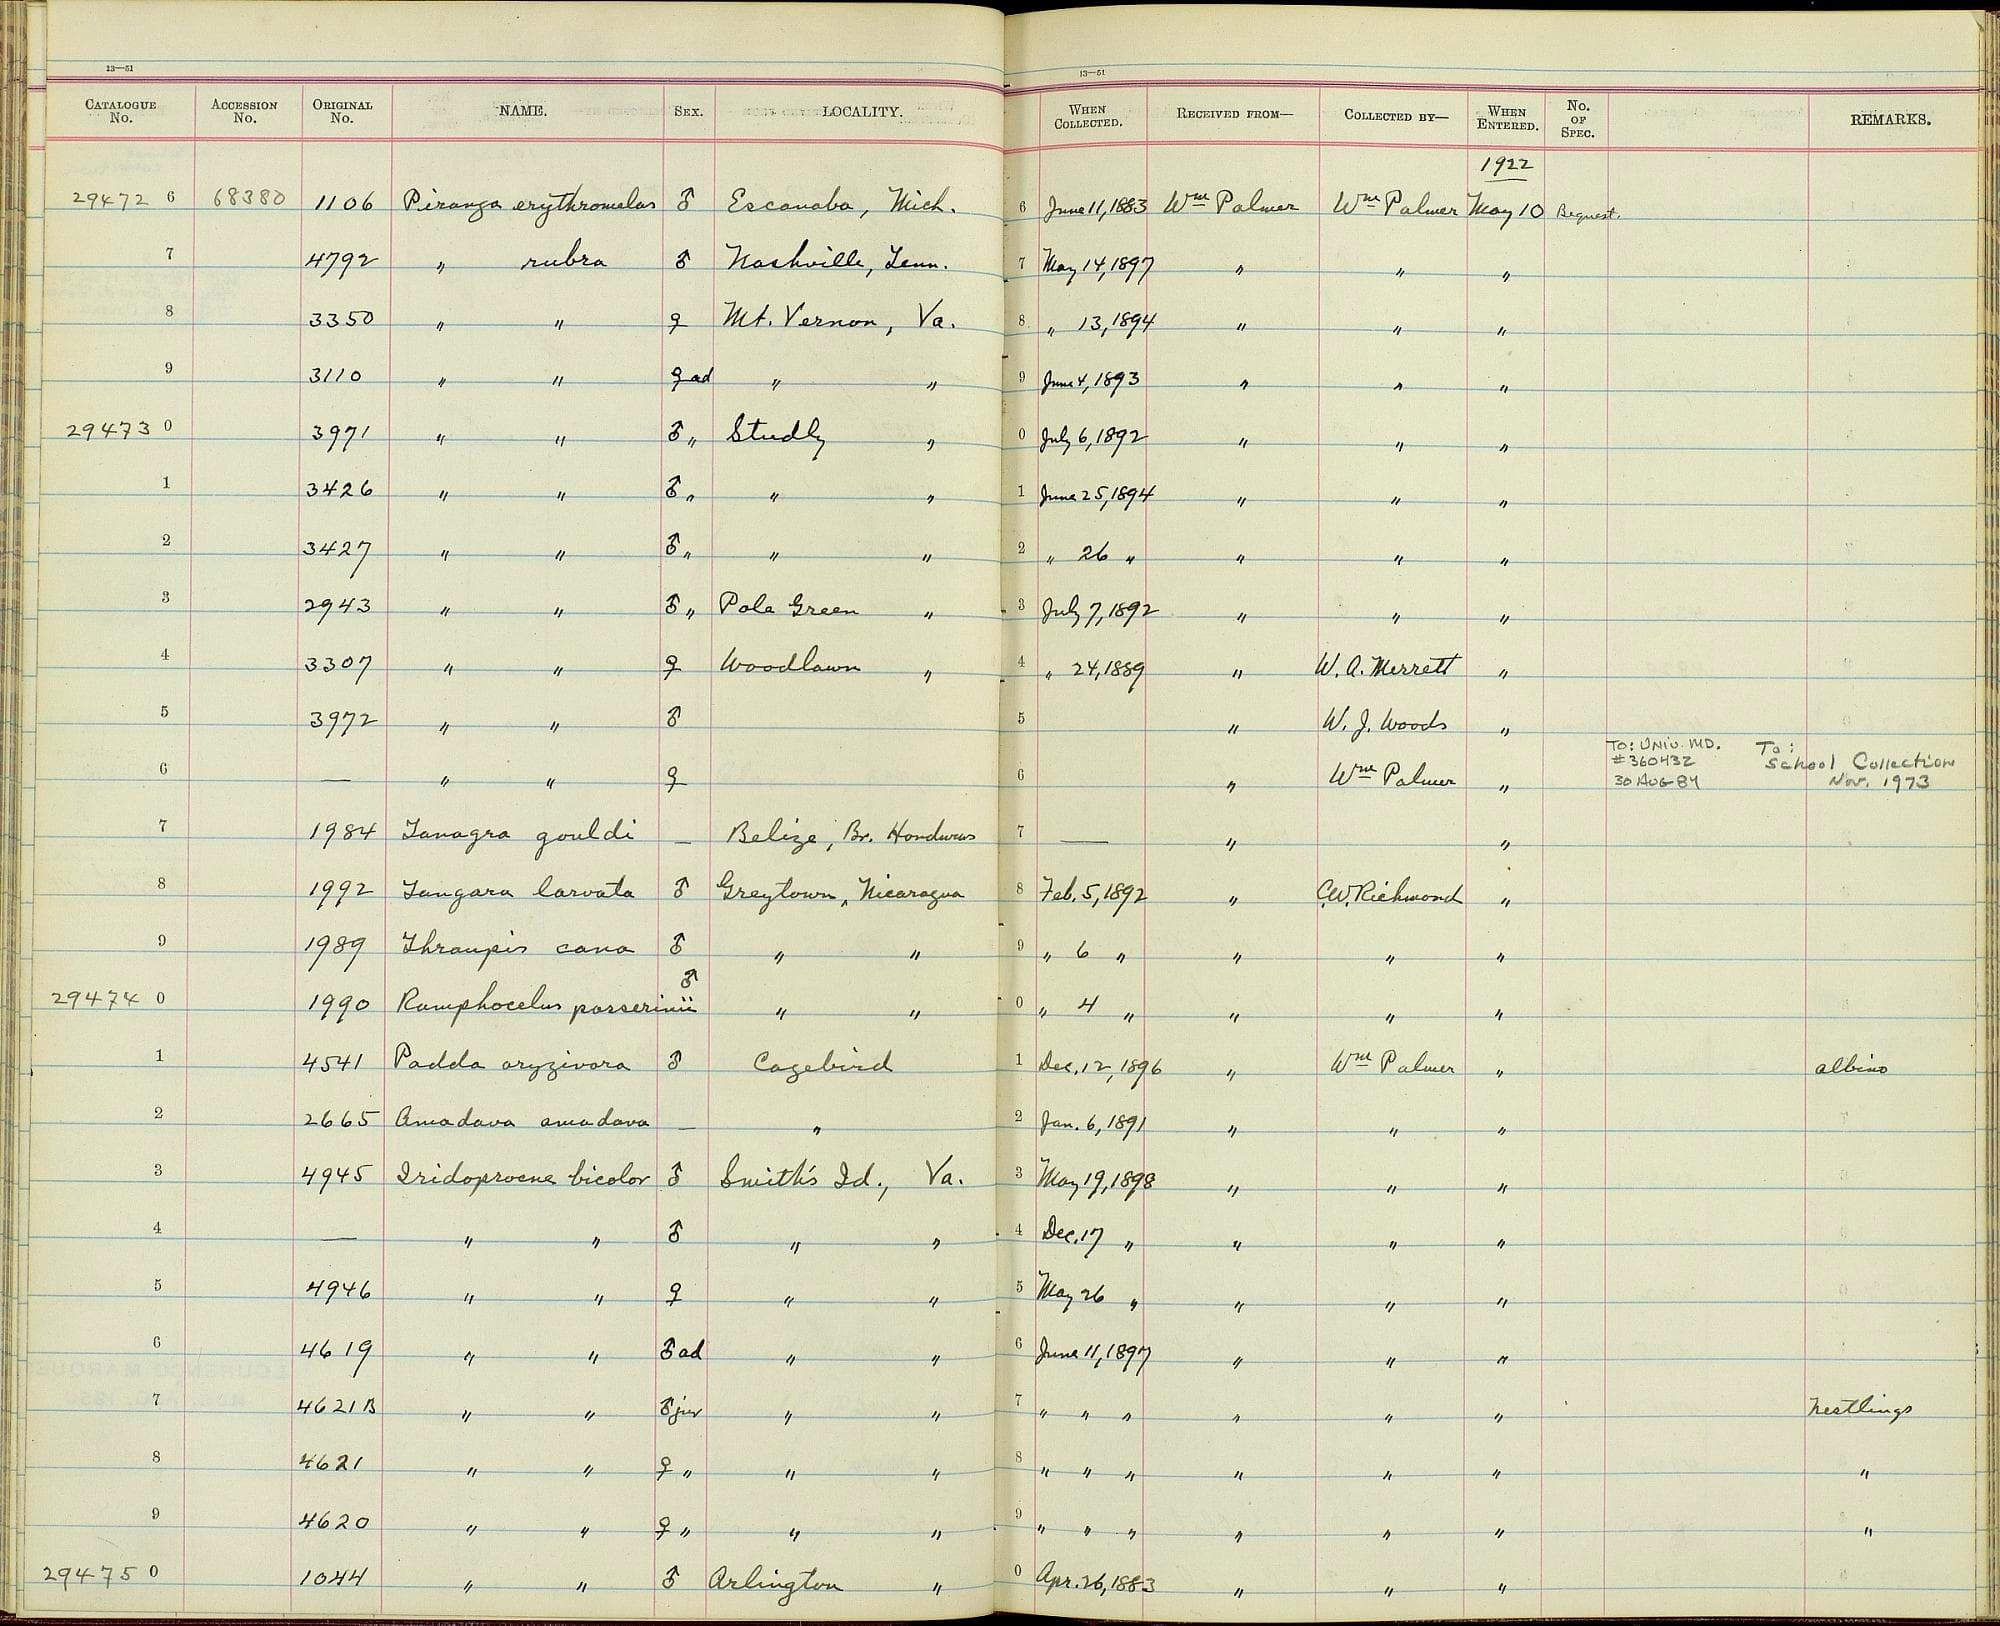 13—51 13—51
CATALOGUE No. ACCESSION No. ORIGINAL No. NAME. SEX. LOCALITY. WHEN COLLECTED. RECEIVED FROM— COLLECTED BY— WHEN ENTERED. No. OF SPEC. REMARKS.
1922
29472 6 68380 1106 Piranga erythromelas ♂ Escanaba, Mich. 6 June 11, 1883 Wm Palmer Wm Palmer May 10 Bequest.
7 4792 " rubra ♂ Nashville, Tenn. 7 May 14, 1897 " " "
8 3350 " " ♀ Mt. Vernon, Va. 8 " 13, 1894 " " "
9 3110 " " ♀ ad " " 9 June 4, 1893 " " "
29473 0 3971 " " ♂ " Studly " 0 July 6, 1892 " " "
1 3426 " " ♂ " " " 1 June 25, 1894 " " "
2 3427 " " ♂ " " " 2 " 26 " " " "
3 2943 " " ♂ " Pole Green " 3 July 7, 1892 " " "
4 3307 " " ♀ Woodlawn " 4 " 24, 1889 " W. A. Merrett "
5 3972 " " ♂ 5 " W. J. Woods "
6 — " " ♀ 6 " Wm Palmer " TO: UNIV. MD. #360432 30 AUG 84 To: School Collection Nov. 1973
7 1984 Tanagra gouldi — Belize, Br. Honduras 7 — " "
8 1992 Tangara larvata ♂ Greytown, Nicaragua 8 Feb. 5, 1892 " C.W. Richmond "
9 1989 Thraupis cana ♂ " " 9 " 6 " " " "
29474 0 1990 Ramphocelus passerinii ♂ " " 0 " 4 " " " "
1 4541 Padda oryzivora ♂ Cagebird 1 Dec. 12, 1896 " Wm Palmer " albino
2 2665 Amadava amadava — " 2 Jan. 6, 1891 " " "
3 4945 Iridoprocne bicolor ♂ Smith's Id., Va. 3 May 19, 1898 " " "
4 — " " ♂ " " 4 Dec. 17 " " " "
5 4946 " " ♀ " " 5 May 26 " " " "
6 4619 " " ♂ ad " " 6 June 11, 1897 " " "
7 4621B " " ♂ juv " " 7 " " " " " " Nestlings
8 4621 " " ♀ " " " 8 " " " " " " "
9 4620 " " ♀ " " " 9 " " " " " " "
29475 0 1044 " " ♂ Arlington " 0 Apr. 26, 1883 " " "